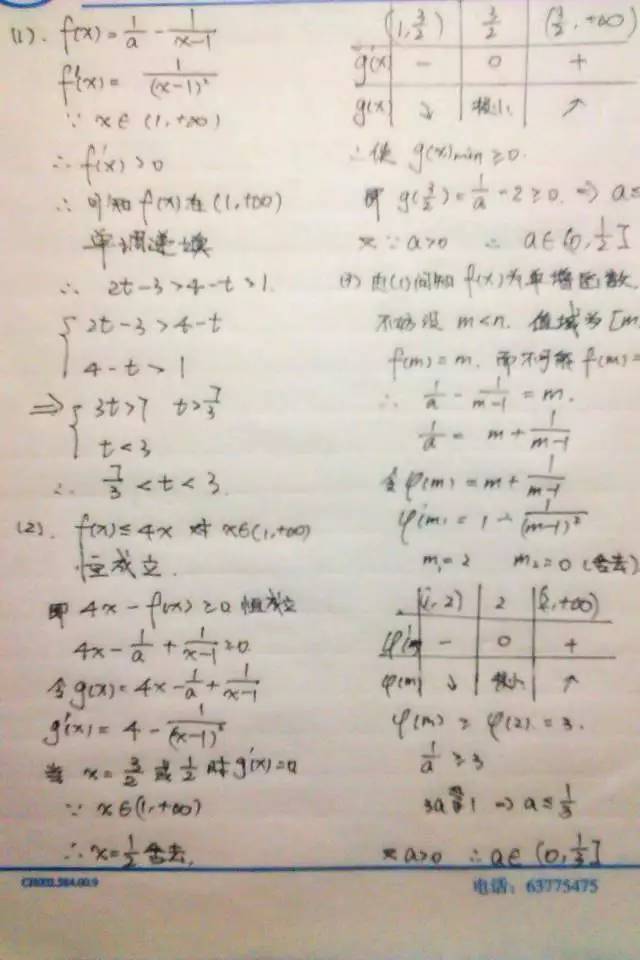 (1). f(x)=1/a - 1/(x-1)
f'(x)= 1/(x-1)²
∵ x∈(1,+∞)
∴ f'(x)>0
∴ 可知 f(x)在(1,+∞)
单调递增
∴ 2t-3>4-t>1.
{ 2t-3>4-t
4-t>1
⇒ { 3t>7 t>7/3
t<3
∴ 7/3<t<3.
(2). f(x)≤4x 对 x∈(1,+∞)
恒成立.
即 4x-f(x)≥0 恒成立
4x-1/a+1/(x-1)≥0.
令 g(x)=4x-1/a+1/(x-1)
g'(x)=4-1/(x-1)²
当 x=3/2 或 1/2 时 g'(x)=0
∵ x∈(1,+∞)
∴ x=1/2 舍去.
(1,3/2) 3/2 (3/2,+∞)
g'(x) - 0 +
g(x) ↓ 极小 ↑
∴使 g(x)min≥0.
即 g(3/2)=1/a-2≥0. ⇒ a≤
又∵a>0 ∴ a∈(0,1/2]
(3) 由(1)问知 f(x)为单增函数.
不妨设 m<n. 值域为[m,
f(m)=m. 而不可能 f(m)=
∴ 1/a-1/(m-1)=m.
1/a=m+1/(m-1)
令φ(m)=m+1/(m-1)
φ'(m)=1-1/(m-1)²
m₁=2 m₂=0 (舍去)
(1,2) 2 (2,+∞)
φ'(m) - 0 +
φ(m) ↓ 极小 ↑
φ(m)≥φ(2)=3.
1/a≥3
3a≤1 ⇒ a≤1/3
又a>0 ∴ a∈(0,1/3]
电话：63775475